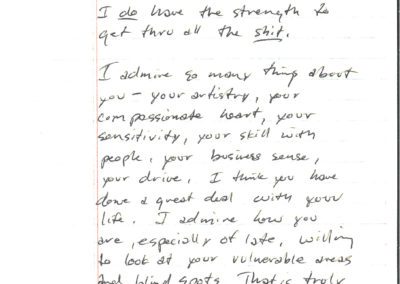 I do have the strength to
get thru all the shit.
I admire so many thing about
you - your artistry, your
compassionate heart, your
sensitivity, your skill with
people, your business sense,
your drive. I think you have
done a great deal with your
life. I admire how you
are, especially of late, willing
to look at your vulnerable areas
and blind spots. That is truly